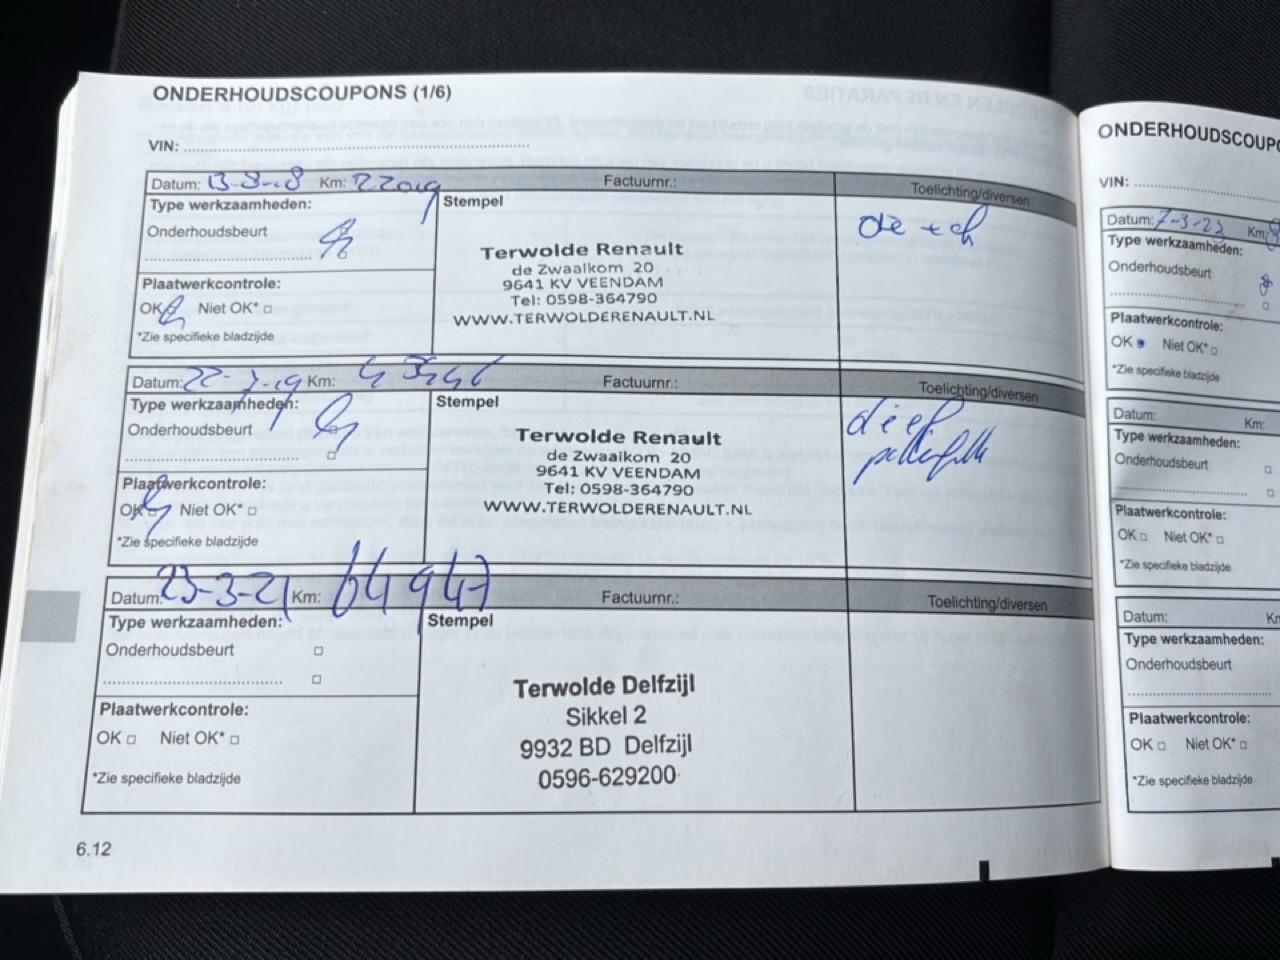 ONDERHOUDSCOUPONS (1/6)
VIN:
Datum: 13-8-18 Km: 22019 Factuurnr.: Toelichting/diversen
Type werkzaamheden: Stempel
Onderhoudsbeurt
Terwolde Renault
de Zwaalkom 20
9641 KV VEENDAM
Tel: 0598-364790
WWW.TERWOLDERENAULT.NL
Plaatwerkcontrole:
OK Niet OK*
*Zie specifieke bladzijde
Datum: 22-7-19 Km: Factuurnr.: Toelichting/diversen
Type werkzaamheden: Stempel
Onderhoudsbeurt
Terwolde Renault
de Zwaalkom 20
9641 KV VEENDAM
Tel: 0598-364790
WWW.TERWOLDERENAULT.NL
Plaatwerkcontrole:
OK Niet OK*
*Zie specifieke bladzijde
Datum: 23-3-21 Km: 64947 Factuurnr.: Toelichting/diversen
Type werkzaamheden: Stempel
Onderhoudsbeurt
Terwolde Delfzijl
Sikkel 2
9932 BD Delfzijl
0596-629200
Plaatwerkcontrole:
OK Niet OK*
*Zie specifieke bladzijde
6.12
ONDERHOUDSCOUPO
VIN:
Datum: 7-3-23 Km:
Type werkzaamheden:
Onderhoudsbeurt
Plaatwerkcontrole:
OK Niet OK*
*Zie specifieke bladzijde
Datum: Km:
Type werkzaamheden:
Onderhoudsbeurt
Plaatwerkcontrole:
OK Niet OK*
*Zie specifieke bladzijde
Datum:
Type werkzaamheden:
Onderhoudsbeurt
Plaatwerkcontrole:
OK Niet OK*
*Zie specifieke bladzijde